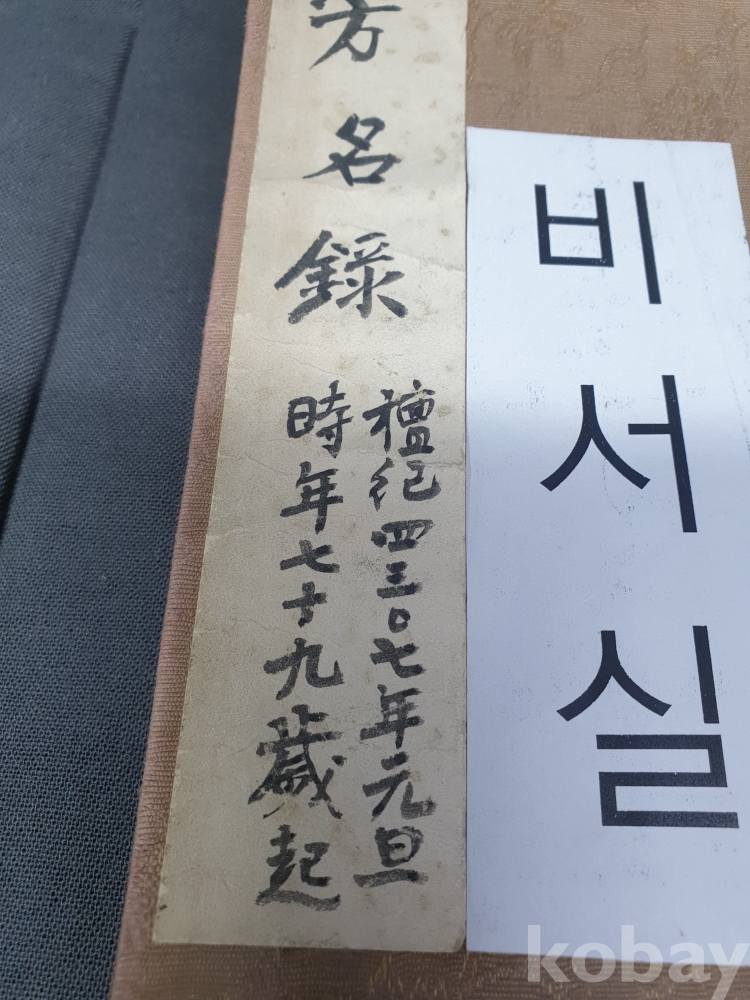 芳名録
檀紀四三〇七年元旦
時年七十九歲起
비서실
kobay